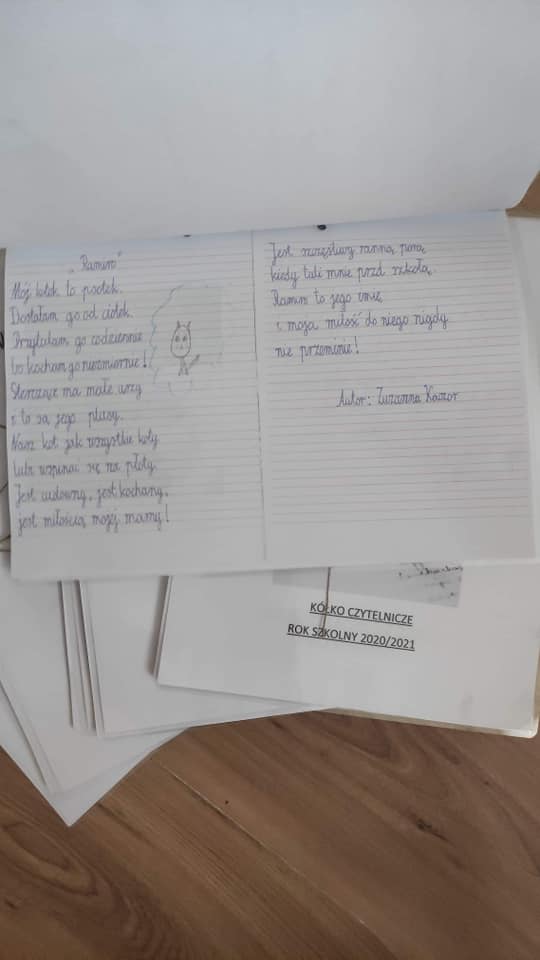 „Ramin”
Mój kotek to psotek.
Dostałam go od ciotek.
Przytulam go codziennie
bo kocham go niezmiernie!
Sterczące ma małe uszy
i to są jego plusy.
Nasz kot jak wszystkie koty
lubi wspinać się na płoty.
Jest cudowny, jest kochany,
jest miłością mojej mamy!
Jest szczęśliwy ranną porą,
kiedy tuli mnie przed szkołą.
Ramin to jego imię
i moja miłość do niego nigdy
nie przeminie!
Autor: Zuzanna Kaczor
KÓŁKO CZYTELNICZE
ROK SZKOLNY 2020/2021